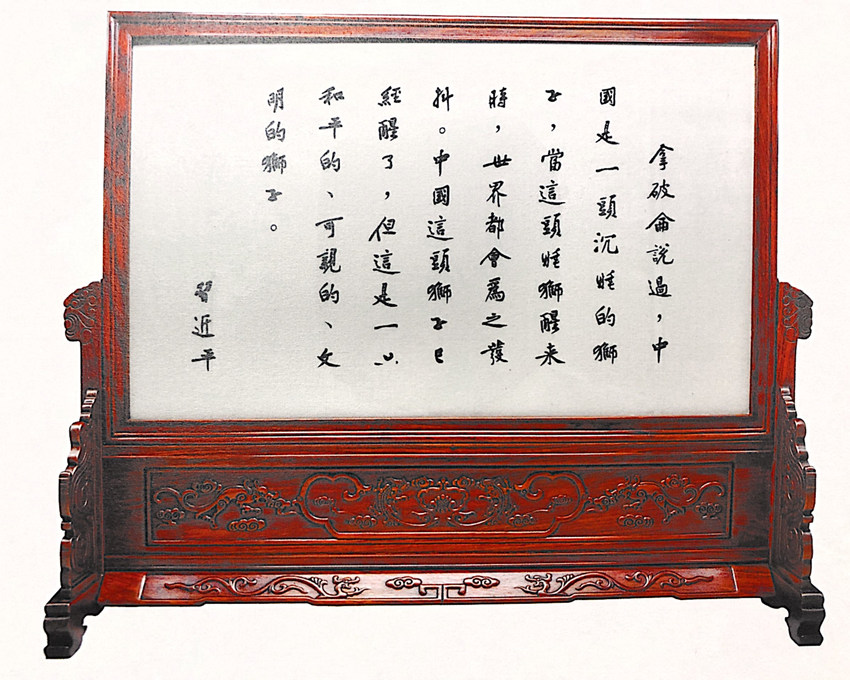 拿破侖說過，中
國是一頭沉睡的獅
子，當這頭睡獅醒来
時，世界都會爲之發
抖。中國這頭獅子已
經醒了，但這是一只
和平的、可親的、文
明的獅子。
習近平